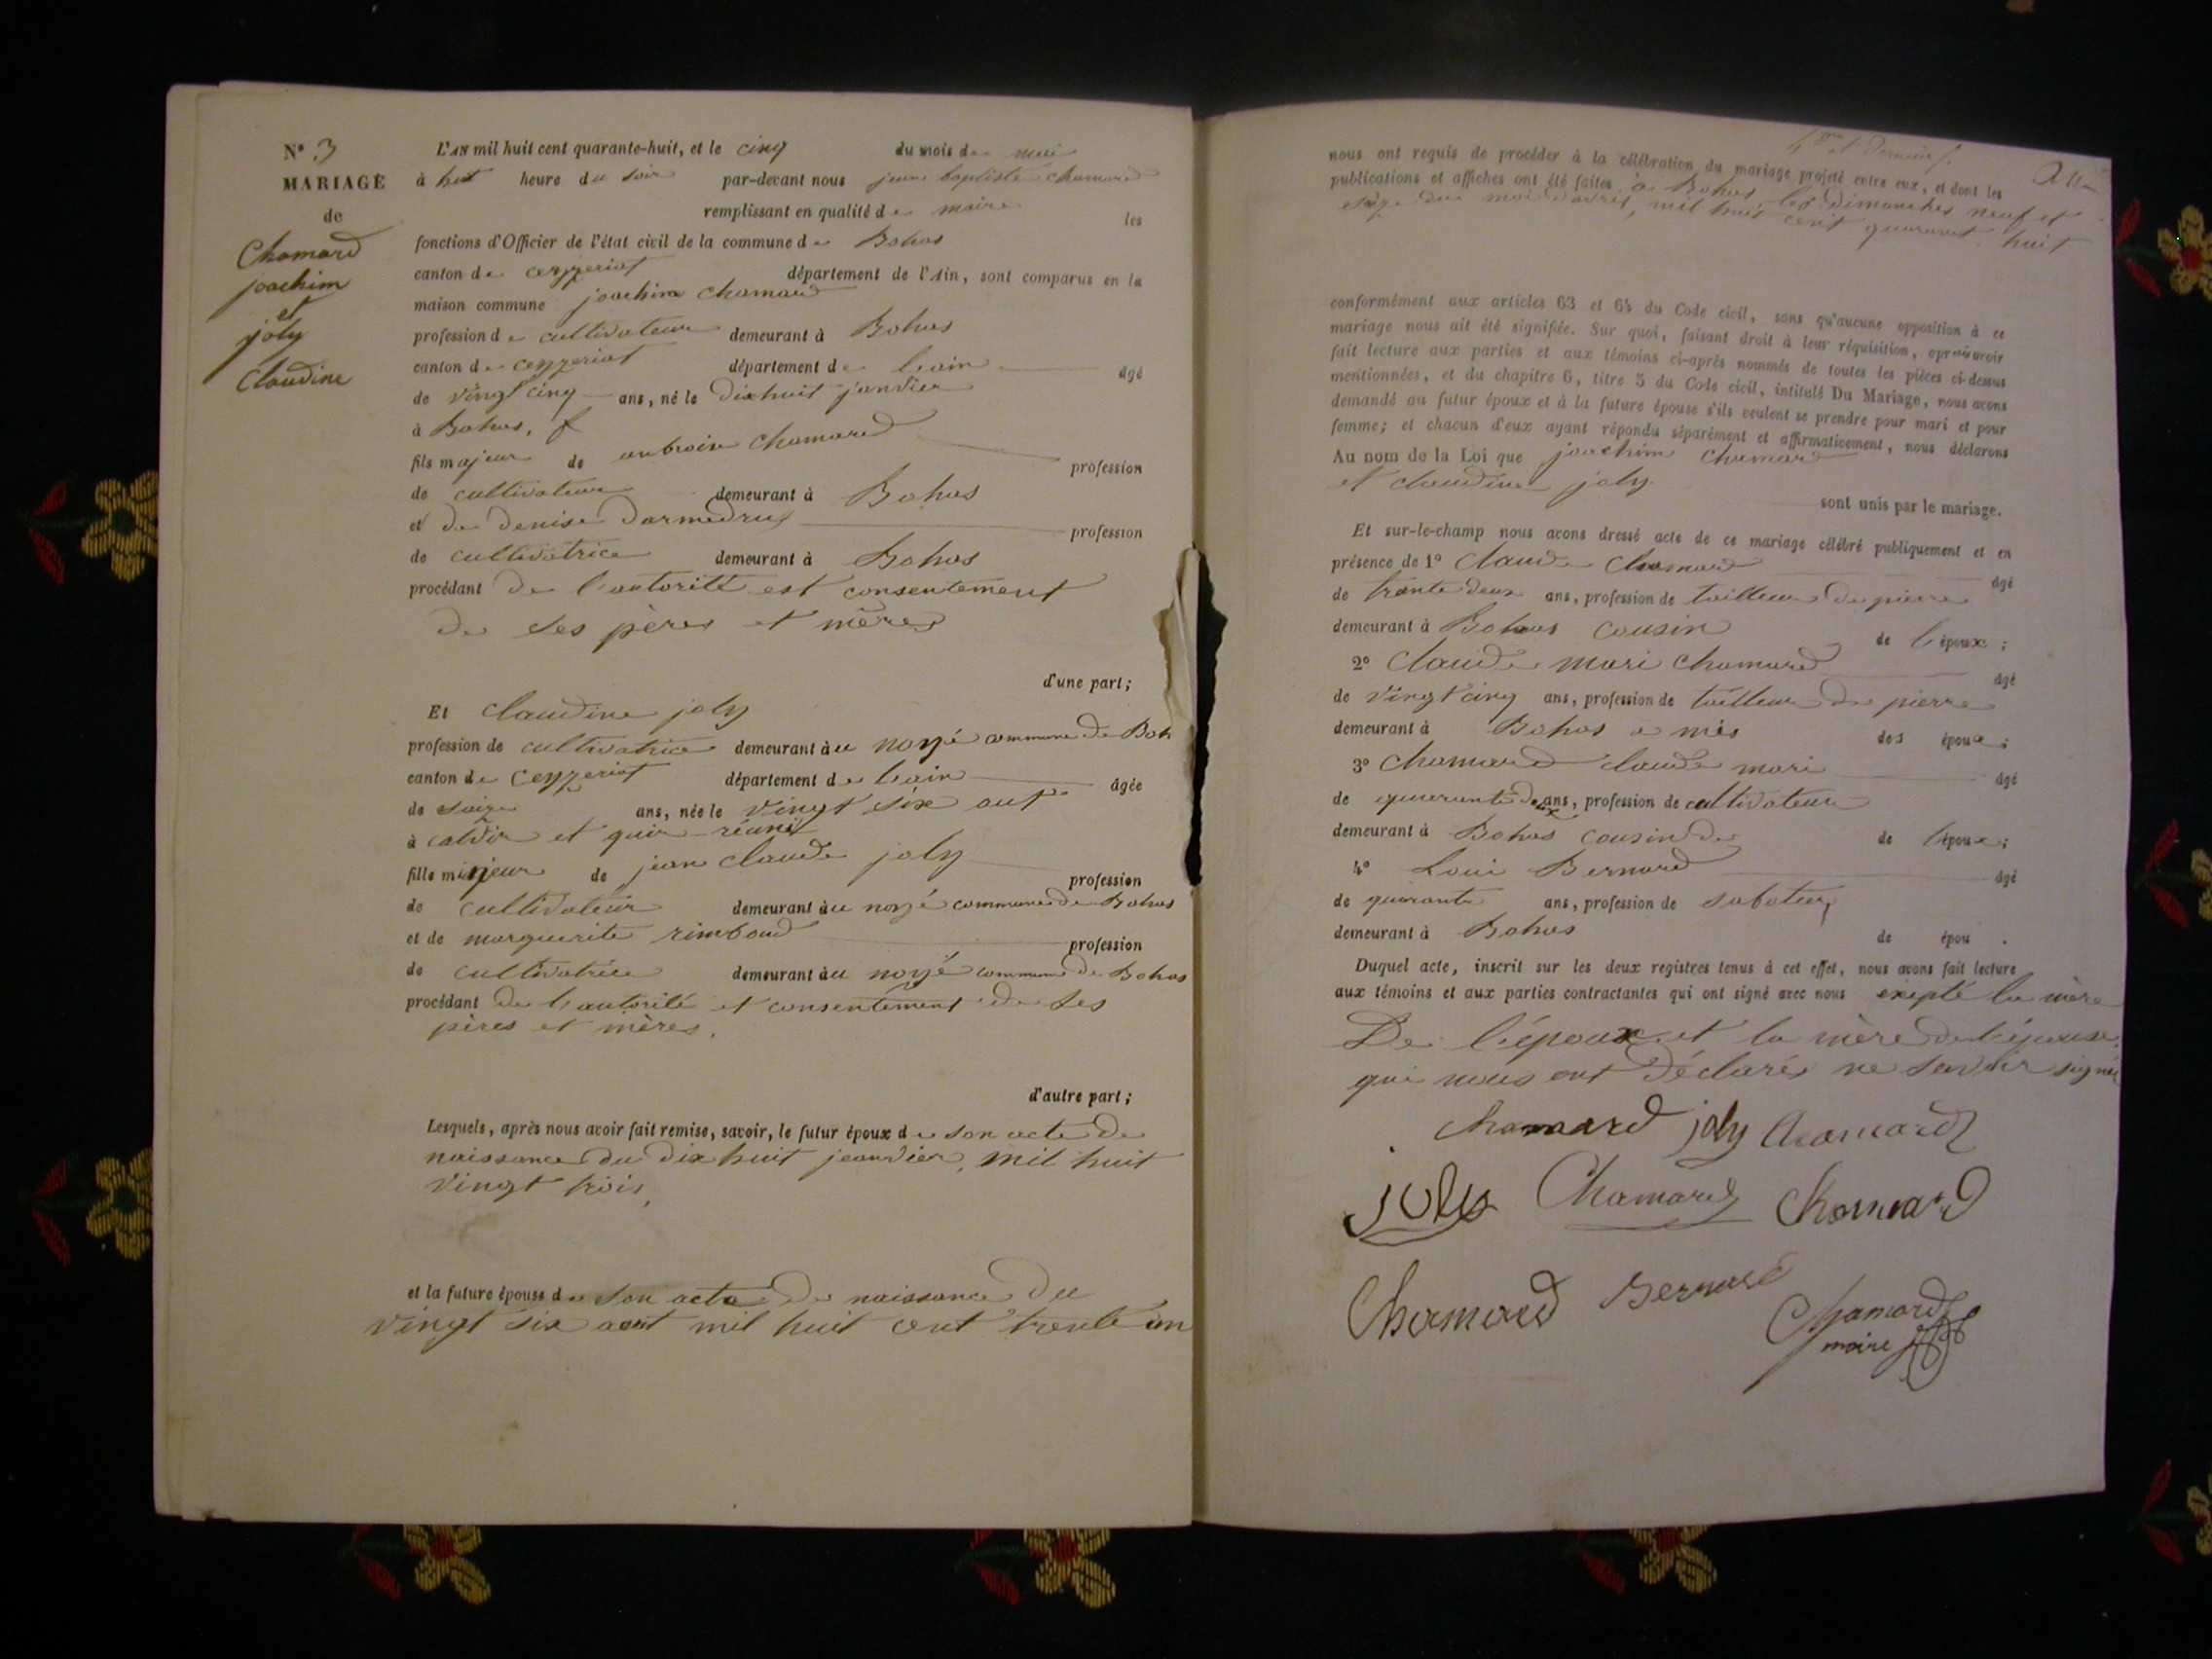 N° 3
MARIAGE
de
Chamard
joachim
et
joly
Claudine
L'AN mil huit cent quarante-huit, et le cinq du mois de mai
à huit heure du soir par-devant nous jean baptiste chamard
remplissant en qualité de maire les
fonctions d'Officier de l'état civil de la commune de Bohas
canton de ceyzeriat département de l'Ain, sont comparus en la
maison commune joachim chamard
profession de cultivateur demeurant à Bohas
canton de ceyzeriat département de l'ain âgé
de vingt cinq ans, né le dixhuit janvier
à Bohas,
fils majeur de anbroise chamard profession
de cultivateur demeurant à Bohas
et de denise darmedru profession
de cultivatrice demeurant à Bohas
procédant de l'autorité est consentement
de ses pères et mères
d'une part;
Et claudine joly
profession de cultivatrice demeurant àu noyé commune de Boh
canton de ceyzeriat département de l'ain âgée
de saize ans, née le vingt six
à et réunit
fille mineur de jean claude joly profession
de cultivateur demeurant àu noyé commune de Bohas
et de marguerite rimboud profession
de cultivatrice demeurant àu noyé commune de Bohas
procédant de l'autorité et consentement de ses
pères et mères.
d'autre part;
Lesquels, après nous avoir fait remise, savoir, le futur époux de son acte de
naissance du dix huit jeanvier, mil huit
vingt trois,
et la future épouse de son acte de naissance du
vingt six aout mil huit cent trente un
4me et dernier f.
nous ont requis de procéder à la célébration du mariage projeté entre eux, et dont les
publications et affiches ont été faites à Bohas, les dimanches neuf et
seize du moi davril, mil huit cent quarante huit
conformément aux articles 63 et 64 du Code civil, sans qu'aucune opposition à ce
mariage nous ait été signifiée. Sur quoi, faisant droit à leur réquisition, après avoir
fait lecture aux parties et aux témoins ci-après nommés de toutes les pièces ci-dessus
mentionnées, et du chapitre 6, titre 5 du Code civil, intitulé Du Mariage, nous avons
demandé au futur époux et à la future épouse s'ils veulent se prendre pour mari et pour
femme; et chacun d'eux ayant répondu séparément et affirmativement, nous déclarons
Au nom de la Loi que joachim chamard
et claudine joly
sont unis par le mariage.
Et sur-le-champ nous avons dressé acte de ce mariage célébré publiquement et en
présence de 1° claude Chamard âgé
de trante deux ans, profession de tailleur de pierre
demeurant à Bohas cousin de l'époux;
2° claude mari chamard âgé
de vingt cinq ans, profession de tailleur de pierre
demeurant à Bohas a mis des époux;
3° chamard claude mari âgé
de quarante deux ans, profession de cultivateur
demeurant à Bohas cousin de de l'époux;
4° Loui Bernard âgé
de quarante ans, profession de saboteur
demeurant à Bohas de épou .
Duquel acte, inscrit sur les deux registres tenus à cet effet, nous avons fait lecture
aux témoins et aux parties contractantes qui ont signé avec nous exepté la mère
De l'époux et la mère de l'épouse.
qui nous ont déclarés ne savoir signer
chamard joly chamard
joly Chamard Chamard
Chamard Bernard
Chamard
maire